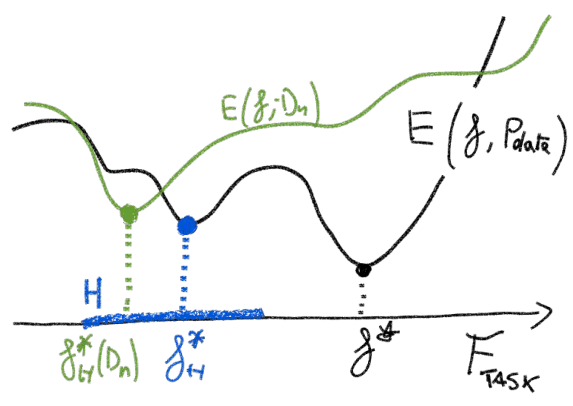 E(f, Dn)
E(f, Pdata)
H
f*H(Dn)
f*H
f*
FTASK